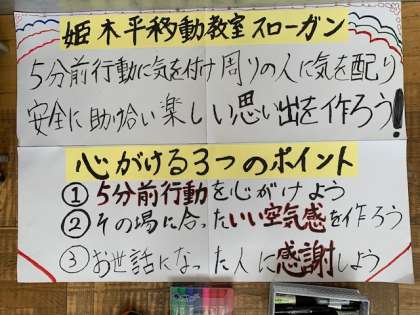 姫木平移動教室スローガン
5分前行動に気を付け周りの人に気を配り
安全に助け合い楽しい思い出を作ろう!
心がける3つのポイント
①5分前行動を心がけよう
②その場に合ったいい空気感を作ろう
③お世話になった人に感謝しよう